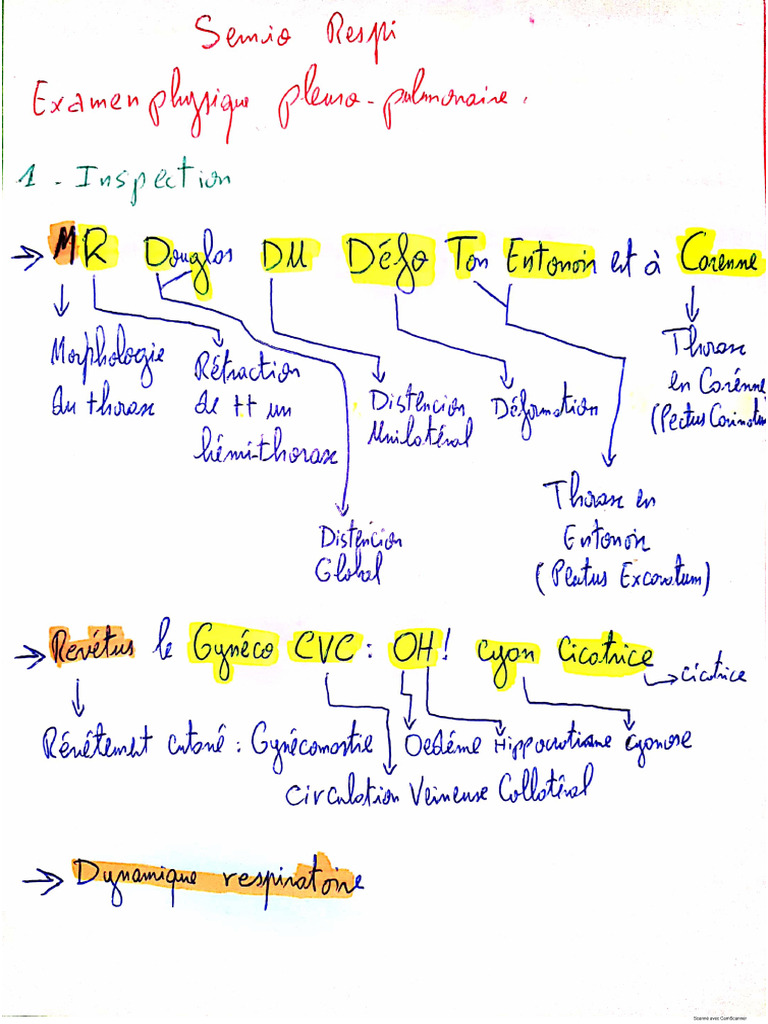 Semio Respi
Examen physique pleuro-pulmonaire.
1 - Inspection
→ MR Douglas DU Défo Ton Entonoir est à Carenne
Morphologie du thorax
Rétraction de tt un hémi-thorax
Distencion Unilatéral
Déformation
Thorax en Carénne (Pectus Carinatum
Distencion Global
Thorax en Entonoir (Pectus Excavatum)
→ Revétus le Gynéco CVC : OH! cyan Cicatrice → cicatrice
Révêtement cutané : Gynécomastie Oedéme Hippocratisme cyanose
Circulation Veineuse Collatéral
→ Dynamique respiratoire
Scanné avec CamScanner